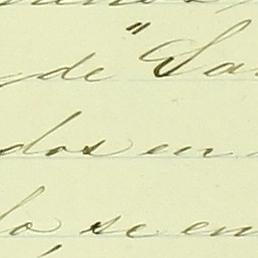 de "Sa
dos en
lo, se en